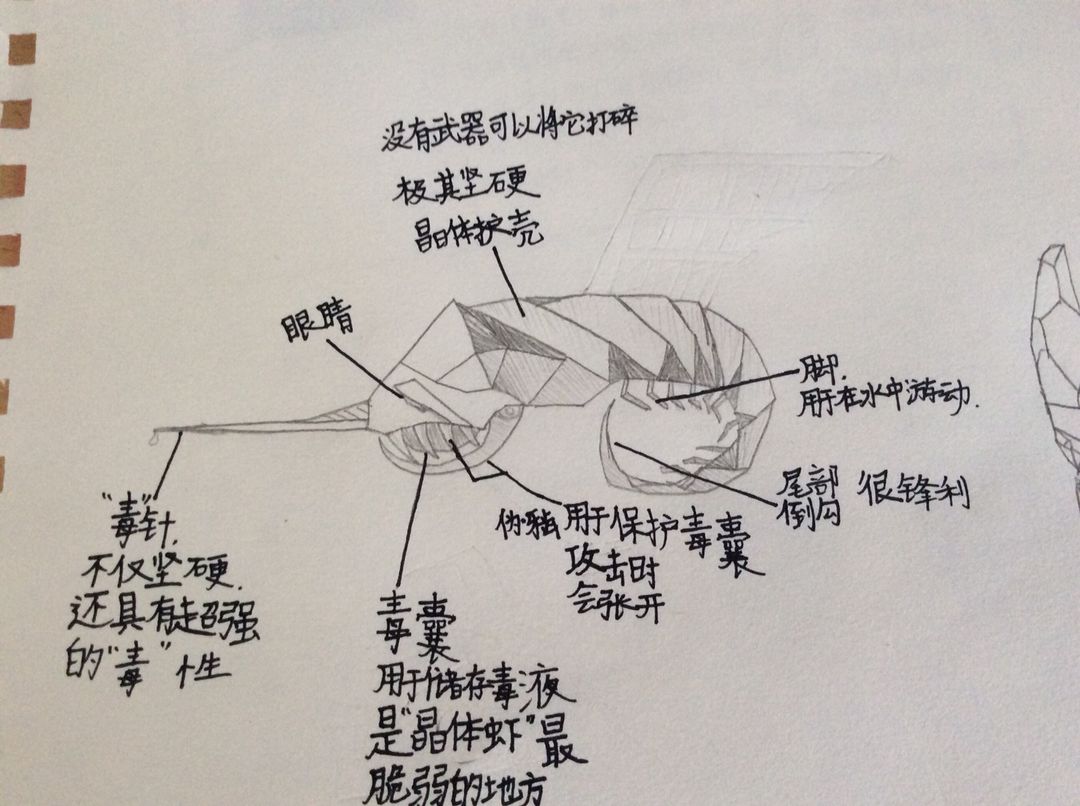 没有武器可以将它打碎
极其坚硬
晶体护壳
眼睛
脚.
用于在水中游动.
尾部
倒勾
很锋利
"毒"针.
不仅坚硬.
还具有超强
的"毒"性
用于保护毒囊
攻击时
会张开
毒囊
用于储存毒液
是"晶体虾"最
脆弱的地方